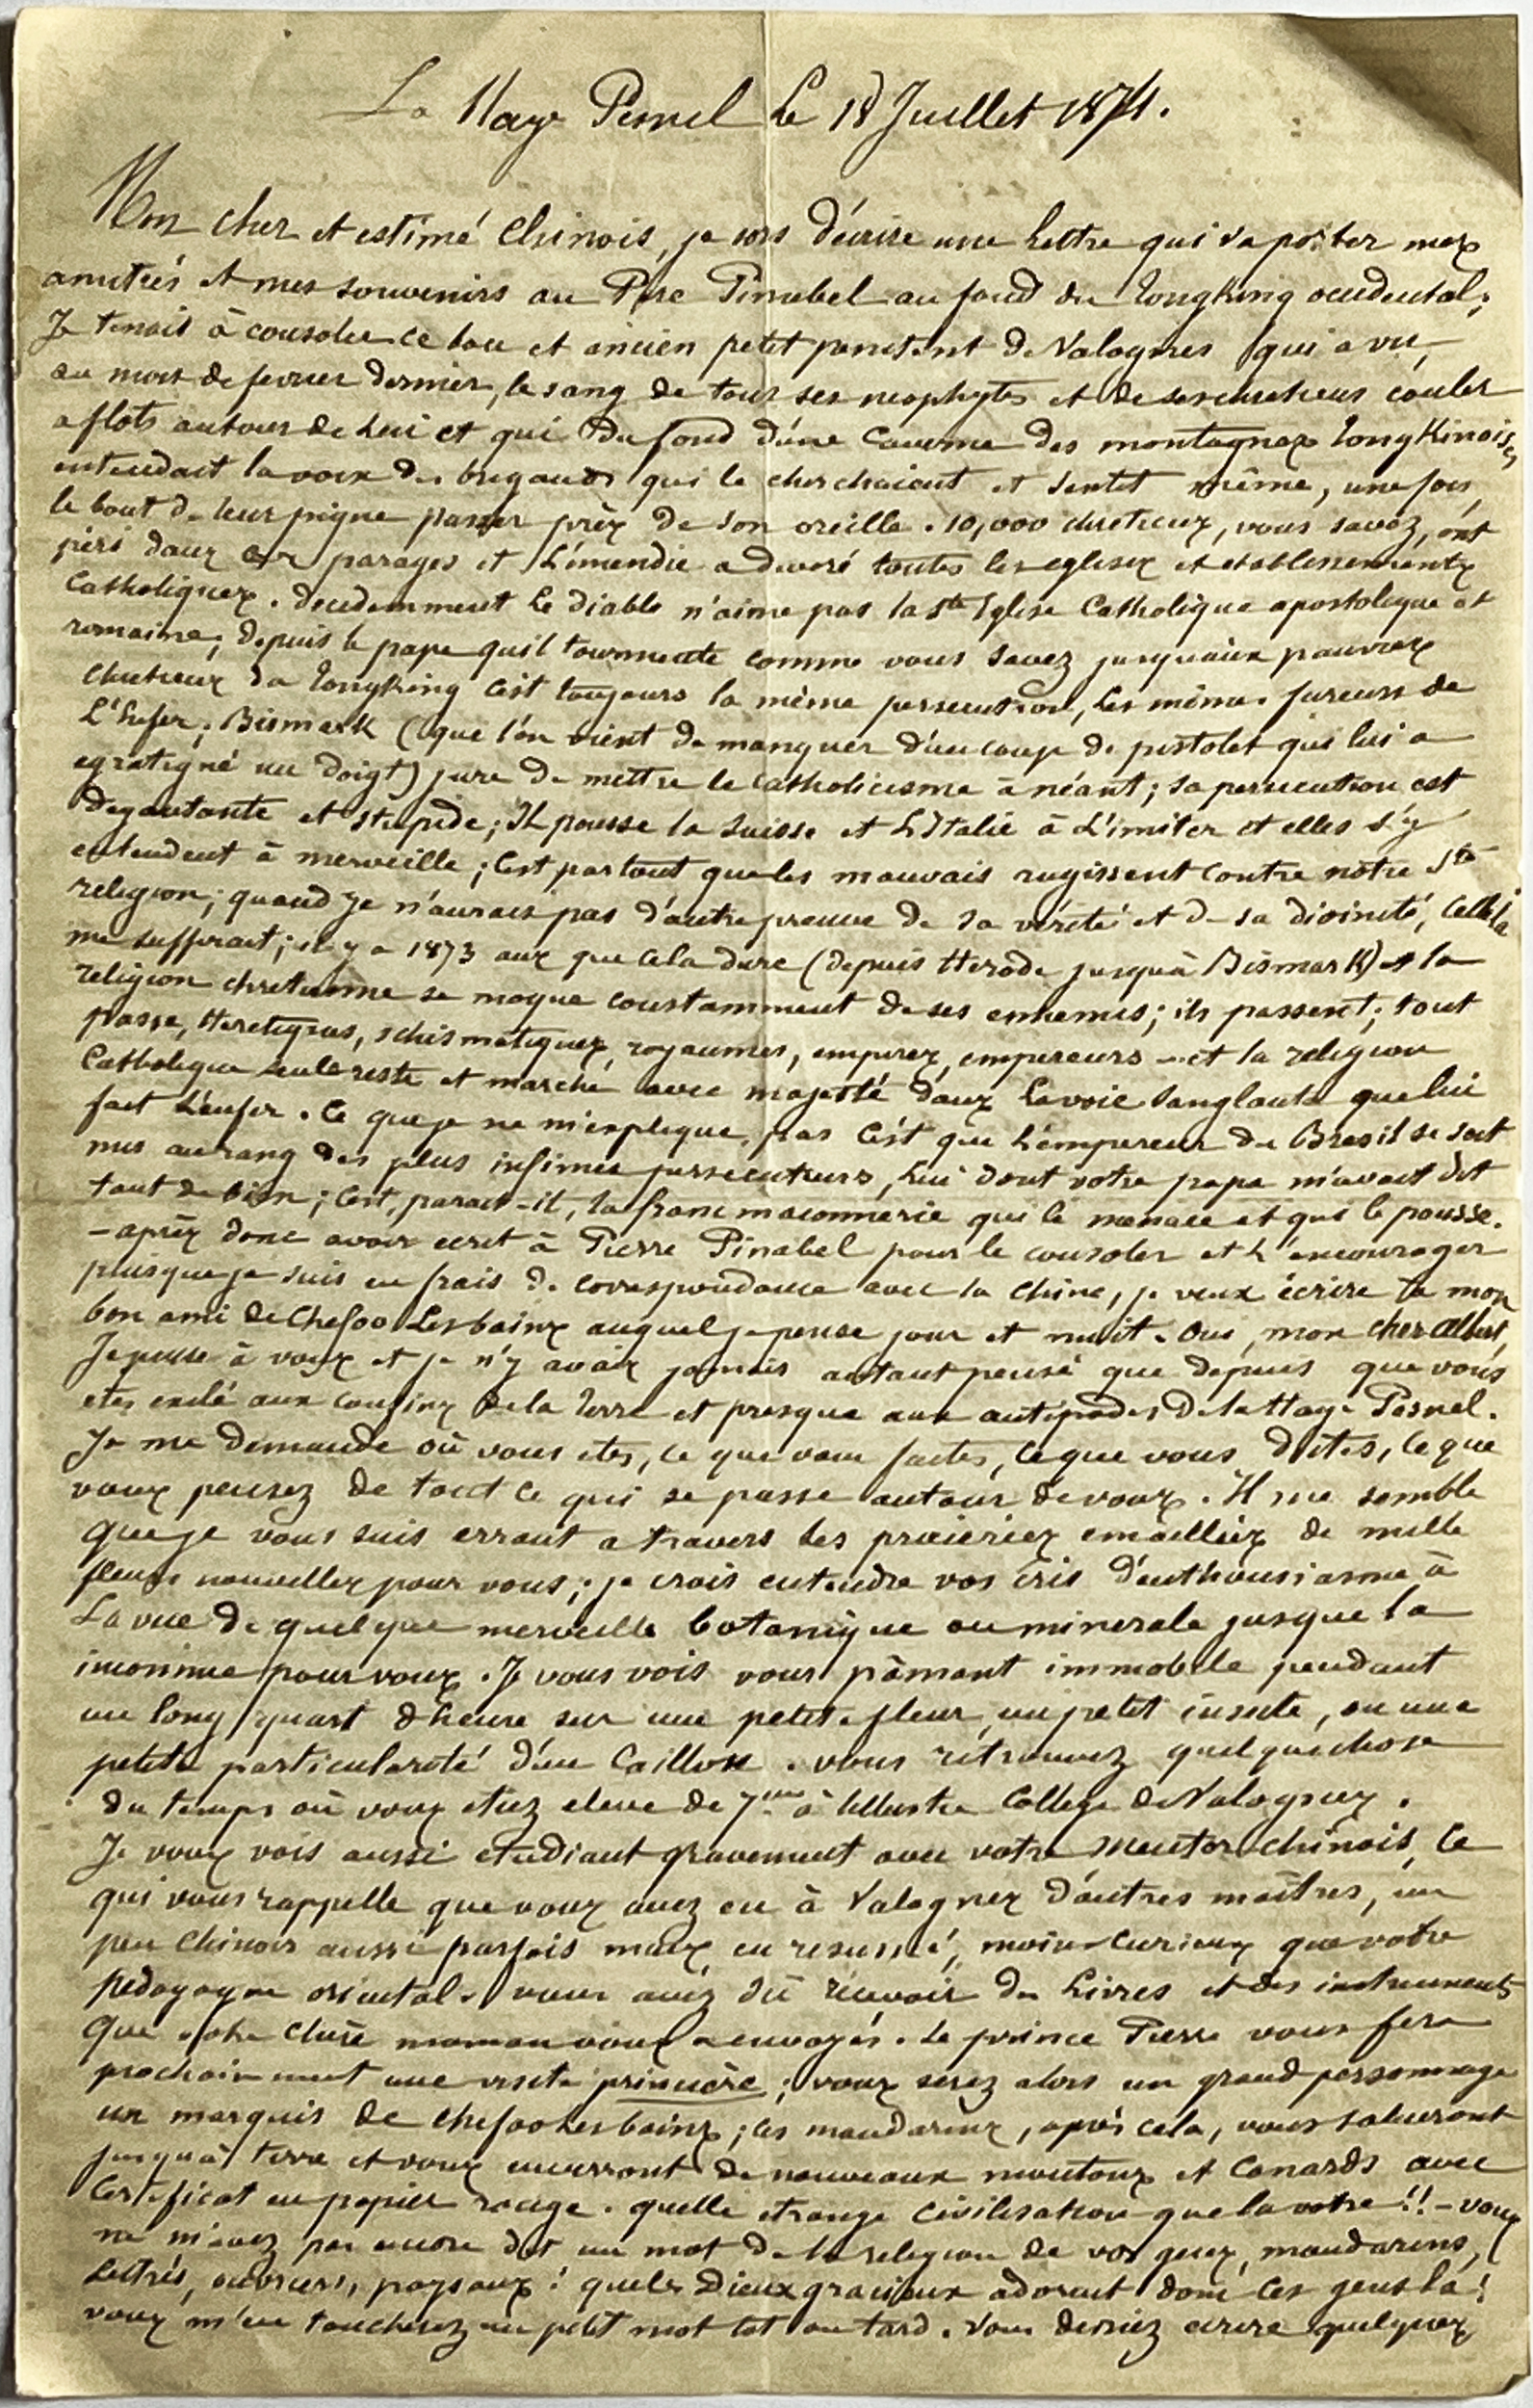 La Haye Pesnel le 18 Juillet 1874.
Mon cher et estimé Chinois, je sors d'écrire une lettre qui va porter mes
amitiés et mes souvenirs au Père Pinabel au fond du Tongking occidental;
Je tenais à consoler ce bon et ancien petit penitent de Valognes qui a vu,
au mois de fevrier dernier, le sang de tous ses neophytes et de ses chretiens couler
a flots autour de lui et qui du fond d'une caverne des montagnes Tongkinoises
entendait la voix des brigands qui le cherchaient et sentit même, une fois,
le bout de leur pique passer près de son oreille. 10,000 chretiens, vous savez, ont
peri dans ces parages et l'incendie a devoré toutes les eglises et etablissements
Catholiques. Decidemment le diable n'aime pas la Ste Eglise Catholique apostolique et
romaine; depuis le pape qu'il tourmente comme vous savez jusqu'aux pauvres
chretiens du Tongking c'est toujours la même persecution, les mêmes fureurs de
L'Enfer; Bismark (que l'on vient de manquer d'un coup de pistolet qui lui a
egratigné un doigt) jure de mettre le Catholicisme à néant; sa persecution est
degoutante et stupide; Il pousse la Suisse et L'Italie à L'imiter et elles s'y
entendent à merveille; C'est partout que les mauvais rugissent contre notre Ste
religion; quand je n'aurais pas d'autre preuve de sa vérité et de sa divinité, Celle là
me suffirait; il y a 1873 ans que cela dure (depuis Herode jusqu'à Bismark) et la
religion chretienne se moque constamment de ses ennemis; ils passent; tout
passe, Heretiques, schismatiques, royaumes, empires, empereurs - et la religion
Catholique seule reste et marche avec majesté dans la voie sanglante que lui
fait L'enfer. Ce que je ne m'explique pas c'est que l'empereur du Bresil se soit
mis au rang des plus infimes persecuteurs, lui dont votre papa m'avait dit
tant de bien; C'est, parait-il, la franc maconnerie qui le menace et qui le pousse.
- après donc avoir ecrit à Pierre Pinabel pour le consoler et L'encourager
puisque je suis en frais de correspondance avec la Chine, je veux écrire à mon
bon ami de Chefoo Les bains auquel je pense jour et nuit. Oui, mon cher Albert,
Je pense à vous et je n'y avais jamais autant pensé que depuis que vous
etes exilé aux confins de la Terre et presque aux antipodes de la Haye Pesnel.
Je me demande où vous etes, ce que vous faites, ce que vous dites, ce que
vous pensez de tout ce qui se passe autour de vous. Il me semble
que je vous suis errant a travers les prairies emaillées de mille
fleurs nouvelles pour vous; je crois entendre vos cris d'enthousiasme à
La vue de quelque merveille botanique ou minerale jusque là
inconnue pour vous. Je vous vois vous pâmant immobile pendant
un long quart d'heure sur une petite fleur, un petit insecte, ou une
petite particularité d'un Caillou. vous retrouvez quelque chose
du temps où vous etiez eleve de 7me à l'illustre College de Valognes.
Je vous vois aussi etudiant gravement avec votre mentor chinois, ce
qui vous rappelle que vous avez eu à Valognes d'autres maîtres, un
peu Chinois aussi parfois mais, en resumé, moins curieux que votre
pedagogue oriental. vous avez dû recevoir des Livres et des instruments
que votre chère maman vous a envoyés. Le prince Pierre vous fera
prochainement une visite princière; vous serez alors un grand personnage
un marquis de Chefoo Les bains; les mandarins, après cela, vous salueront
jusqu'à terre et vous enverront de nouveaux moutons et Canards avec
Certificat en papier rouge. quelle etrange civilisation que la votre!! - vous
ne m'avez pas encore dit un mot de la religion de vos gens, mandarins,
Lettrés, ouvriers, paysans! quels Dieux gracieux adorent donc ces gens là!
vous m'en toucherez un petit mot tot ou tard. Vous devriez ecrire quelques